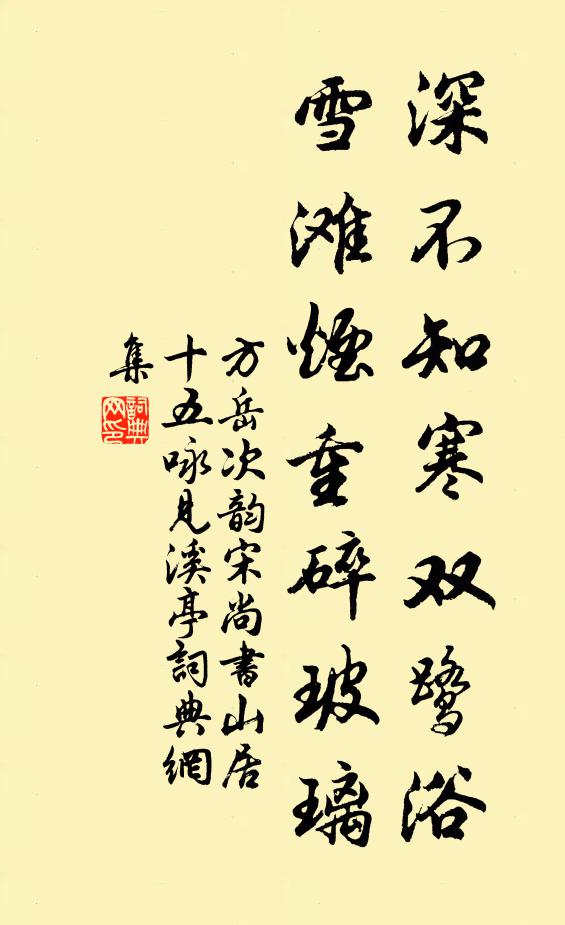 深不知寒双鹭浴
雪滩烟重碎玻璃
方岳次韵宋尚书山居
十五咏见溪亭詞典網
集
詞典
网印